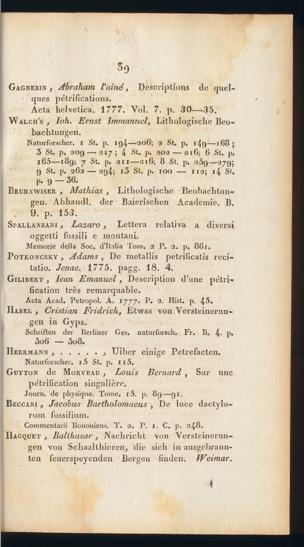 39
GAGNEBIN, Abraham l'ainé, Descriptions de quel-
ques pétrifications.
Acta helvetica. 1777. Vol. 7. p. 30—35.
WALCH'S, Ioh. Ernst Immanuel, Lithologische Beo-
bachtungen.
Naturforscher. 1 St. p. 194—206; 2 St. p. 149—168;
3 St. p. 209—217; 4 St. p. 202—216; 6 St. p.
165—189; 7 St. p. 211—216; 8 St. p. 259—279;
9 St. p. 262—294; 13 St. p. 100—112; 14 St.
p. 9—36.
BRUNSWISER, Mathias, Lithologische Beobachtun-
gen. Abhandl. der Baierischen Academie. B.
9. p. 153.
SPALLANZANI, Lazaro, Lettera relativa a diversi
oggetti fossili e montani.
Memorie della Soc. d'Italia Tom. 2 P. 2. p. 861.
POTKONCZKY, Adams, De metallis petrificatis reci-
tatio. Jenae. 1775. pagg. 18. 4.
GILIBERT, Iean Emanuel, Description d'une pétri-
fication très remarquable.
Acta Acad. Petropol. A. 1777. P. 2. Hist. p. 45.
HABEL, Cristian Fridrich, Etwas von Versteinerun-
gen in Gyps.
Schriften der Berliner Ges. naturforsch. Fr. B. 4. p.
306—308.
HERRMANN, . . . . . ., Uiber einige Petrefacten.
Naturforscher. 15 St. p. 115.
GUYTON de MORVEAU, Louis Bernard, Sur une
pétrification singulière.
Journ. de physique. Tome. 15. p. 89—91.
BECCARI, Jacobus Bartholomaeus, De luce dactylo-
rum fossilium.
Commentarii Bononiens. T. 2. P. 1. C. p. 248.
HACQUET, Balthasar, Nachricht von Versteinerun-
gen von Schalthieren, die sich in ausgebrann-
ten feuerspeyenden Bergen finden. Weimar.